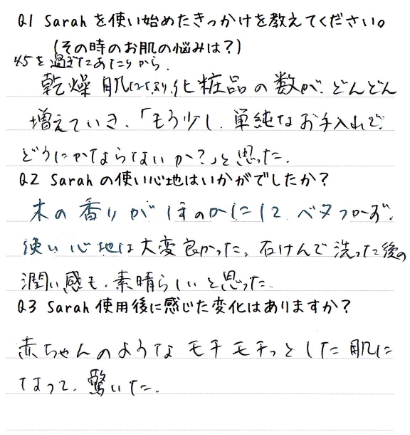 Q1 Sarahを使い始めたきっかけを教えてください。
(その時のお肌の悩みは?)
45を過ぎたあたりから、
乾燥肌になり、化粧品の数が、どんどん
増えていき、「もう少し、単純なお手入れで、
どうにかならないか?」と思った。
Q2 Sarahの使い心地はいかがでしたか?
木の香りがほのかにして、ベタつかず、
使い心地は大変良かった。石けんで洗った後の
潤い感も、素晴らしいと思った。
Q3 Sarah使用後に感じた変化はありますか?
赤ちゃんのようなモチモチっとした肌に
なって、驚いた。